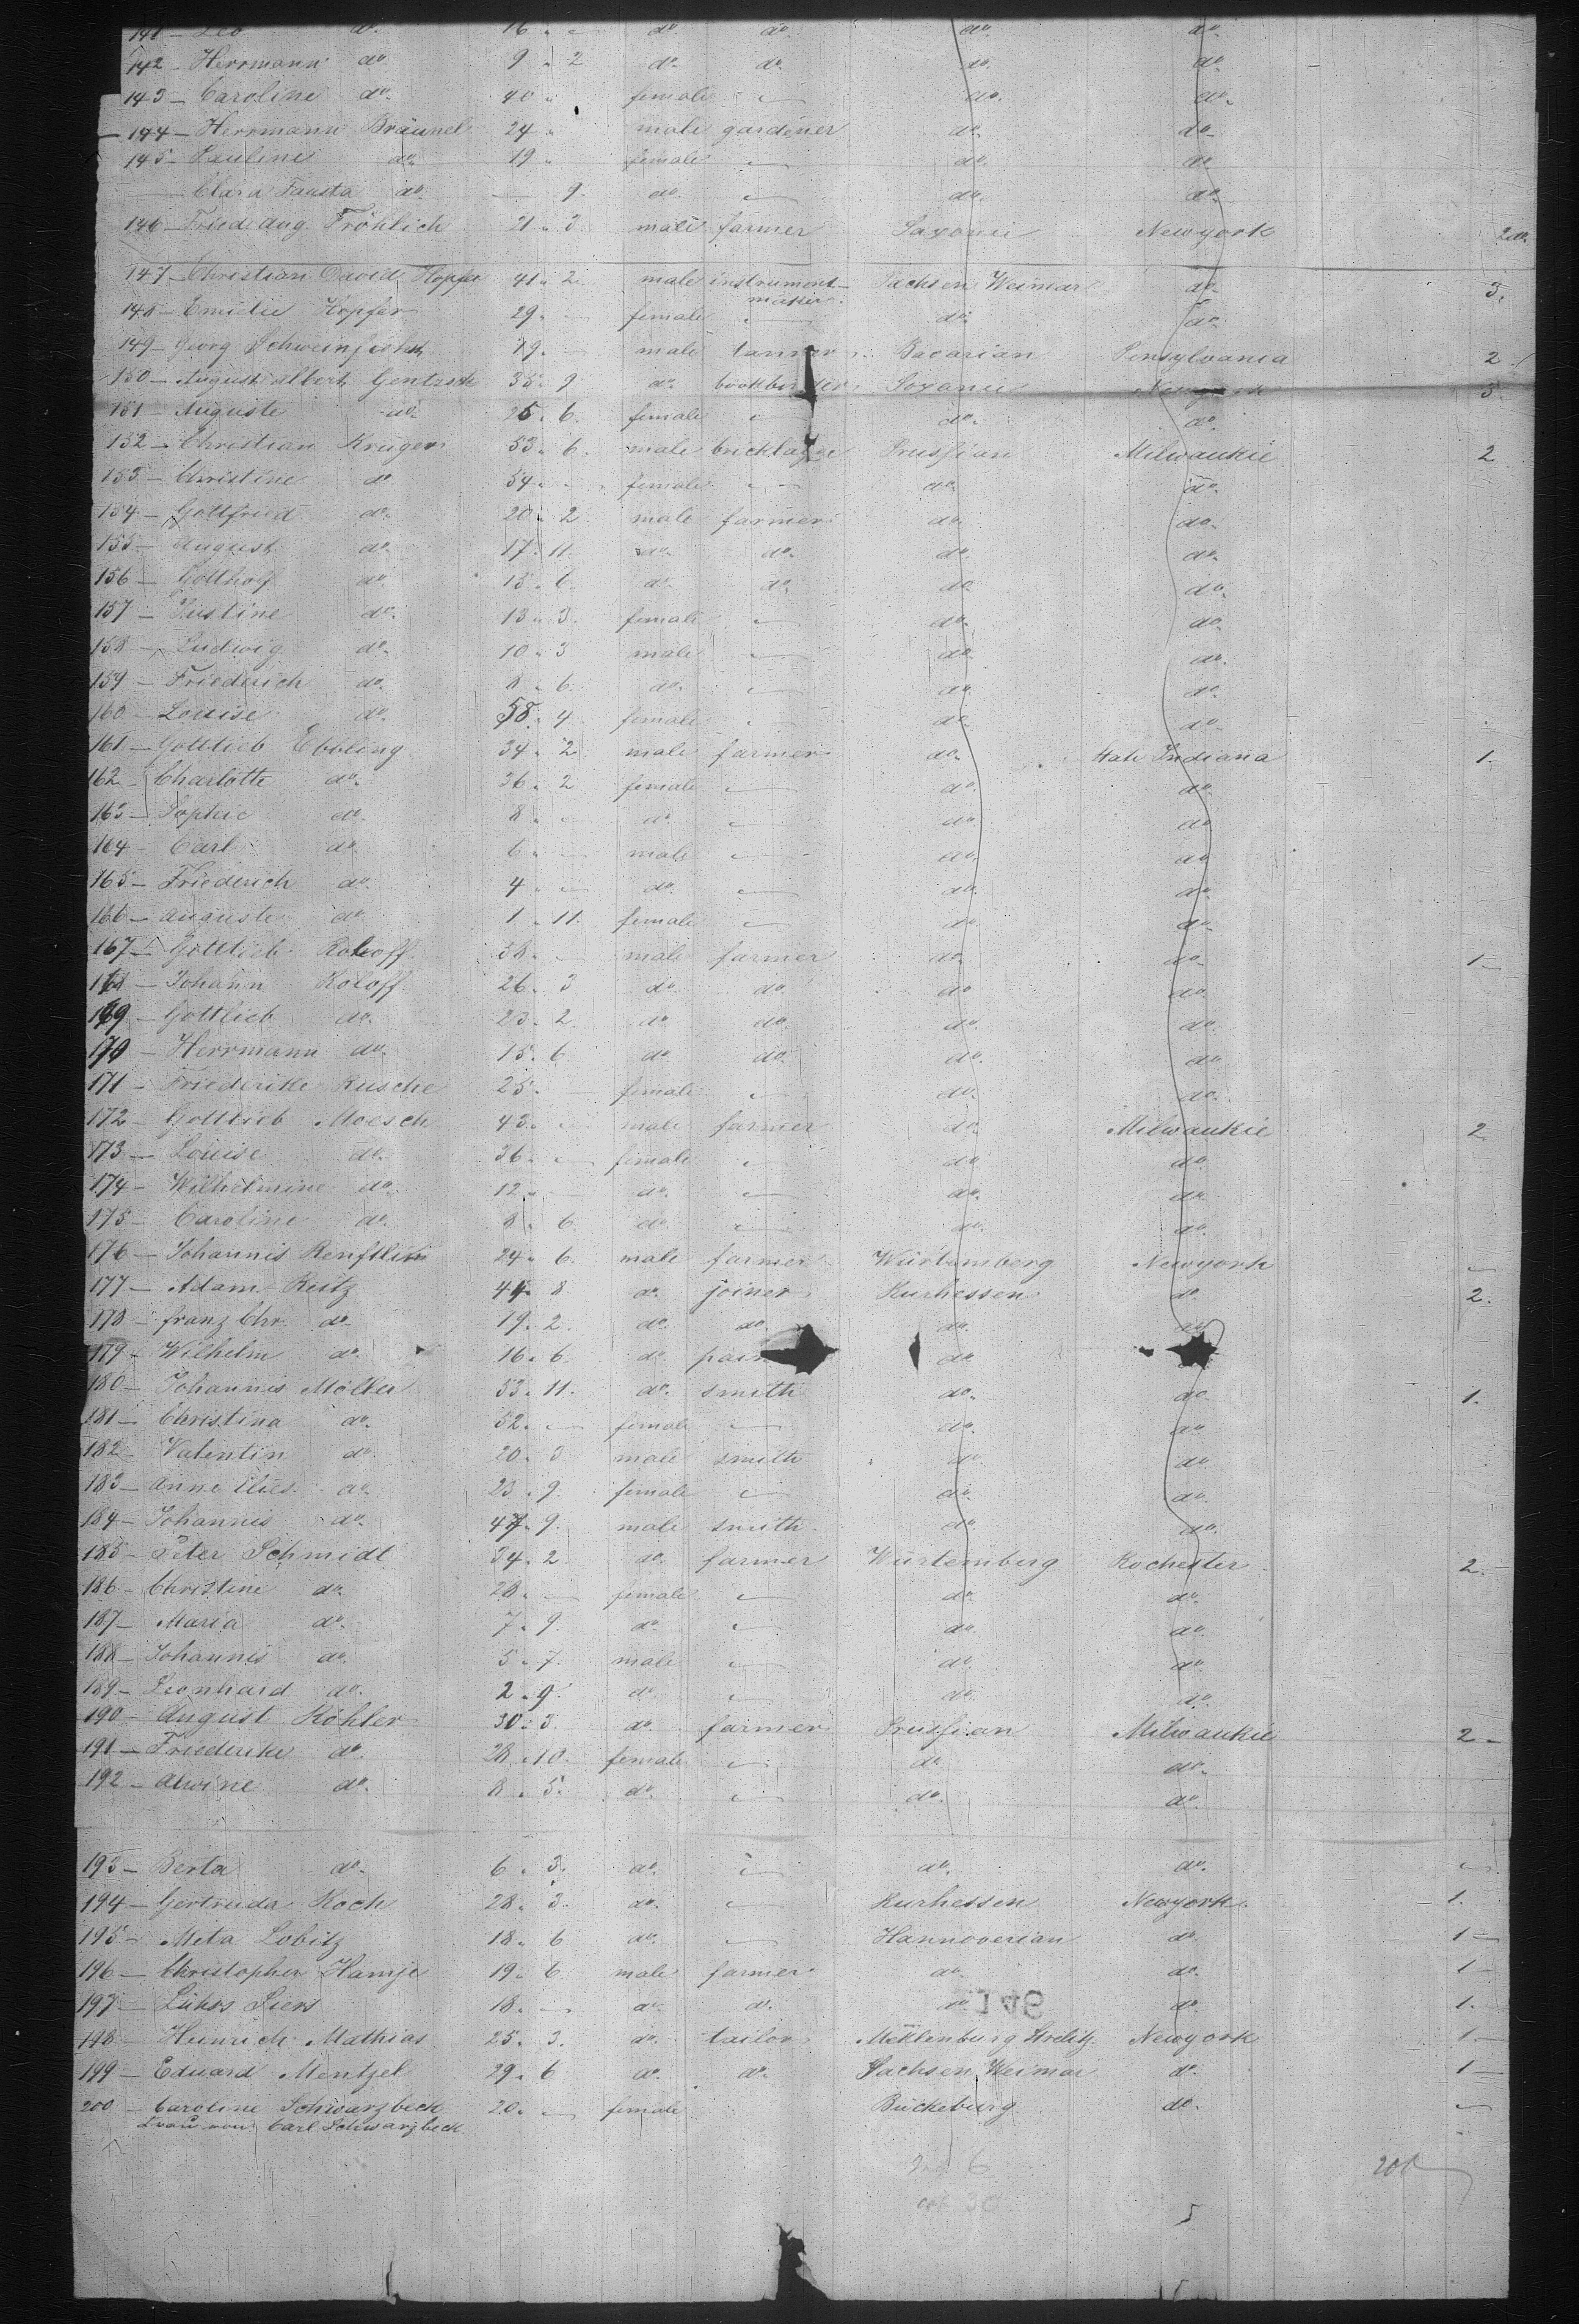 141 - Leo do. 16 " - do. do. do. do.
142 - Herrmann do. 9 " 2 do. do. do. do.
143 - Caroline do. 40 " female - do. do.
144 - Herrmann Bräunel 24 " male gardener do. do.
145 - Pauline do. 19 " female - do. do.
- Clara Fausta do. - 9. do. - do. do.
146 - Fried. Aug. Fröhlich 21 " 3 male farmer Saxonie Newyork
147 - Christian David Hopfer 41 " 2. male instrument- Sachsen Weimar do. 3.
maker.
148 - Emilie Hopfer 29 " - female - do. do.
149 - Georg 19 " - male tanner Bavarian Pensylvania 2
150 - August Albert Gentzsch 35 " 9 do. bookbinder Saxonie Newyork 3.
151 - Auguste do. 25 " 6. female - do. do.
152 - Christian Krüger 53 " 6. male bricklayer Prussian Milwaukie 2
153 - Christine do. 54 " - female - do. do.
154 - Gottfried do. 20 " 2. male farmer do. do.
155 - August do. 17 " 11. do. do. do. do.
156 - Gottholf do. 15 " 6. do. do. do. do.
157 - Justine do. 13 " 3. female - do. do.
158 - Ludwig do. 10 " 3 male - do. do.
159 - Friederich do. 8 " 6. do. - do. do.
160 - Louise do. 58 " 4 female - do. do.
161 - Gottlieb Ebbling 34 " 2 male farmer do. State Indiana 1.
162 - Charlotte do. 36 " 2 female - do. do.
163 - Sophie do. 8 " - do. - do. do.
164 - Carl do. 6 " - male - do. do.
165 - Friederich do. 4 " - do. - do. do.
166 - Auguste do. 1 " 11. female - do. do.
167 - Gottlieb Roloff 58 " - male farmer do. do. 1 -
168 - Johann Roloff 26 " 3 do. do. do. do.
169 - Gottlieb do. 23 " 2. do. do. do. do.
170 - Herrmann do. 15 " 6. do. do. do. do.
171 - Friederike Rusche 25 " - female - do. do.
172 - Gottlieb Moesch 43 " - male farmer do. Milwaukie 2
173 - Louise do. 36 " - female - do. do.
174 - Wilhelmine do. 12 " - do. - do. do.
175 - Caroline do. 8 " 6 do. - do. do.
176 - Johannis Renftlen 24 " 6. male farmer Würtemberg Newyork -
177 - Adam Reitz 44 " 8 do. joiner Kurhessen do. 2.
178 - Franz Chr. do. 19 " 2. do. do. do. do.
179 - Wilhelm do. 16 " 6. do. do.
180 - Johannis Möller 53 " 11. do. smith do. do. 1.
181 - Christina do. 52 " - female - do. do.
182 - Valentin do. 20 " 3 male smith do. do.
183 - Anne Elies. do. 23 " 9. female - do. do.
184 - Johannis do. 47 " 9. male smith do. do.
185 - Peter Schmidt 34 " 2 do. farmer Würtemberg Rochester 2. -
186 - Christine do. 28 " - female - do. do.
187 - Maria do. 7 " 9. do. - do. do.
188 - Johannis do. 5 " 7. male - do. do.
189 - Leonhard do. 2 " 9. do. - do. do.
190 - August Köhler 30 " 3. do. farmer Prussian Milwaukie 2 -
191 - Friederike do. 28 " 10. female - do. do.
192 - Alwine do. 8 " 5. do. - do. do.
193 - Berta do. 6 " 3. do. - do. do. -
194 - Gertruda Koch 28 " 3. do. - Kurhessen Newyork. 1.
195 - Meta Lobitz 18 " 6 do. - Hannoverian do. 1 -
196 - Christopher Hamje 19 " 6. male farmer do. do. 1 -
197 - Lühss Siers 18 " - do. do. do. do. 1.
198 - Heinrich Mathias 25 " 3. do. tailor Meklenburg Strelitz Newyork 1 -
199 - Eduard Mentzel 29 " 6 do. do. Sachsen Weimar do. 1 -
200 - Caroline Schwarzbeck 20 " - female Bückeburg do. -
Frau von Carl Schwarzbeck
200